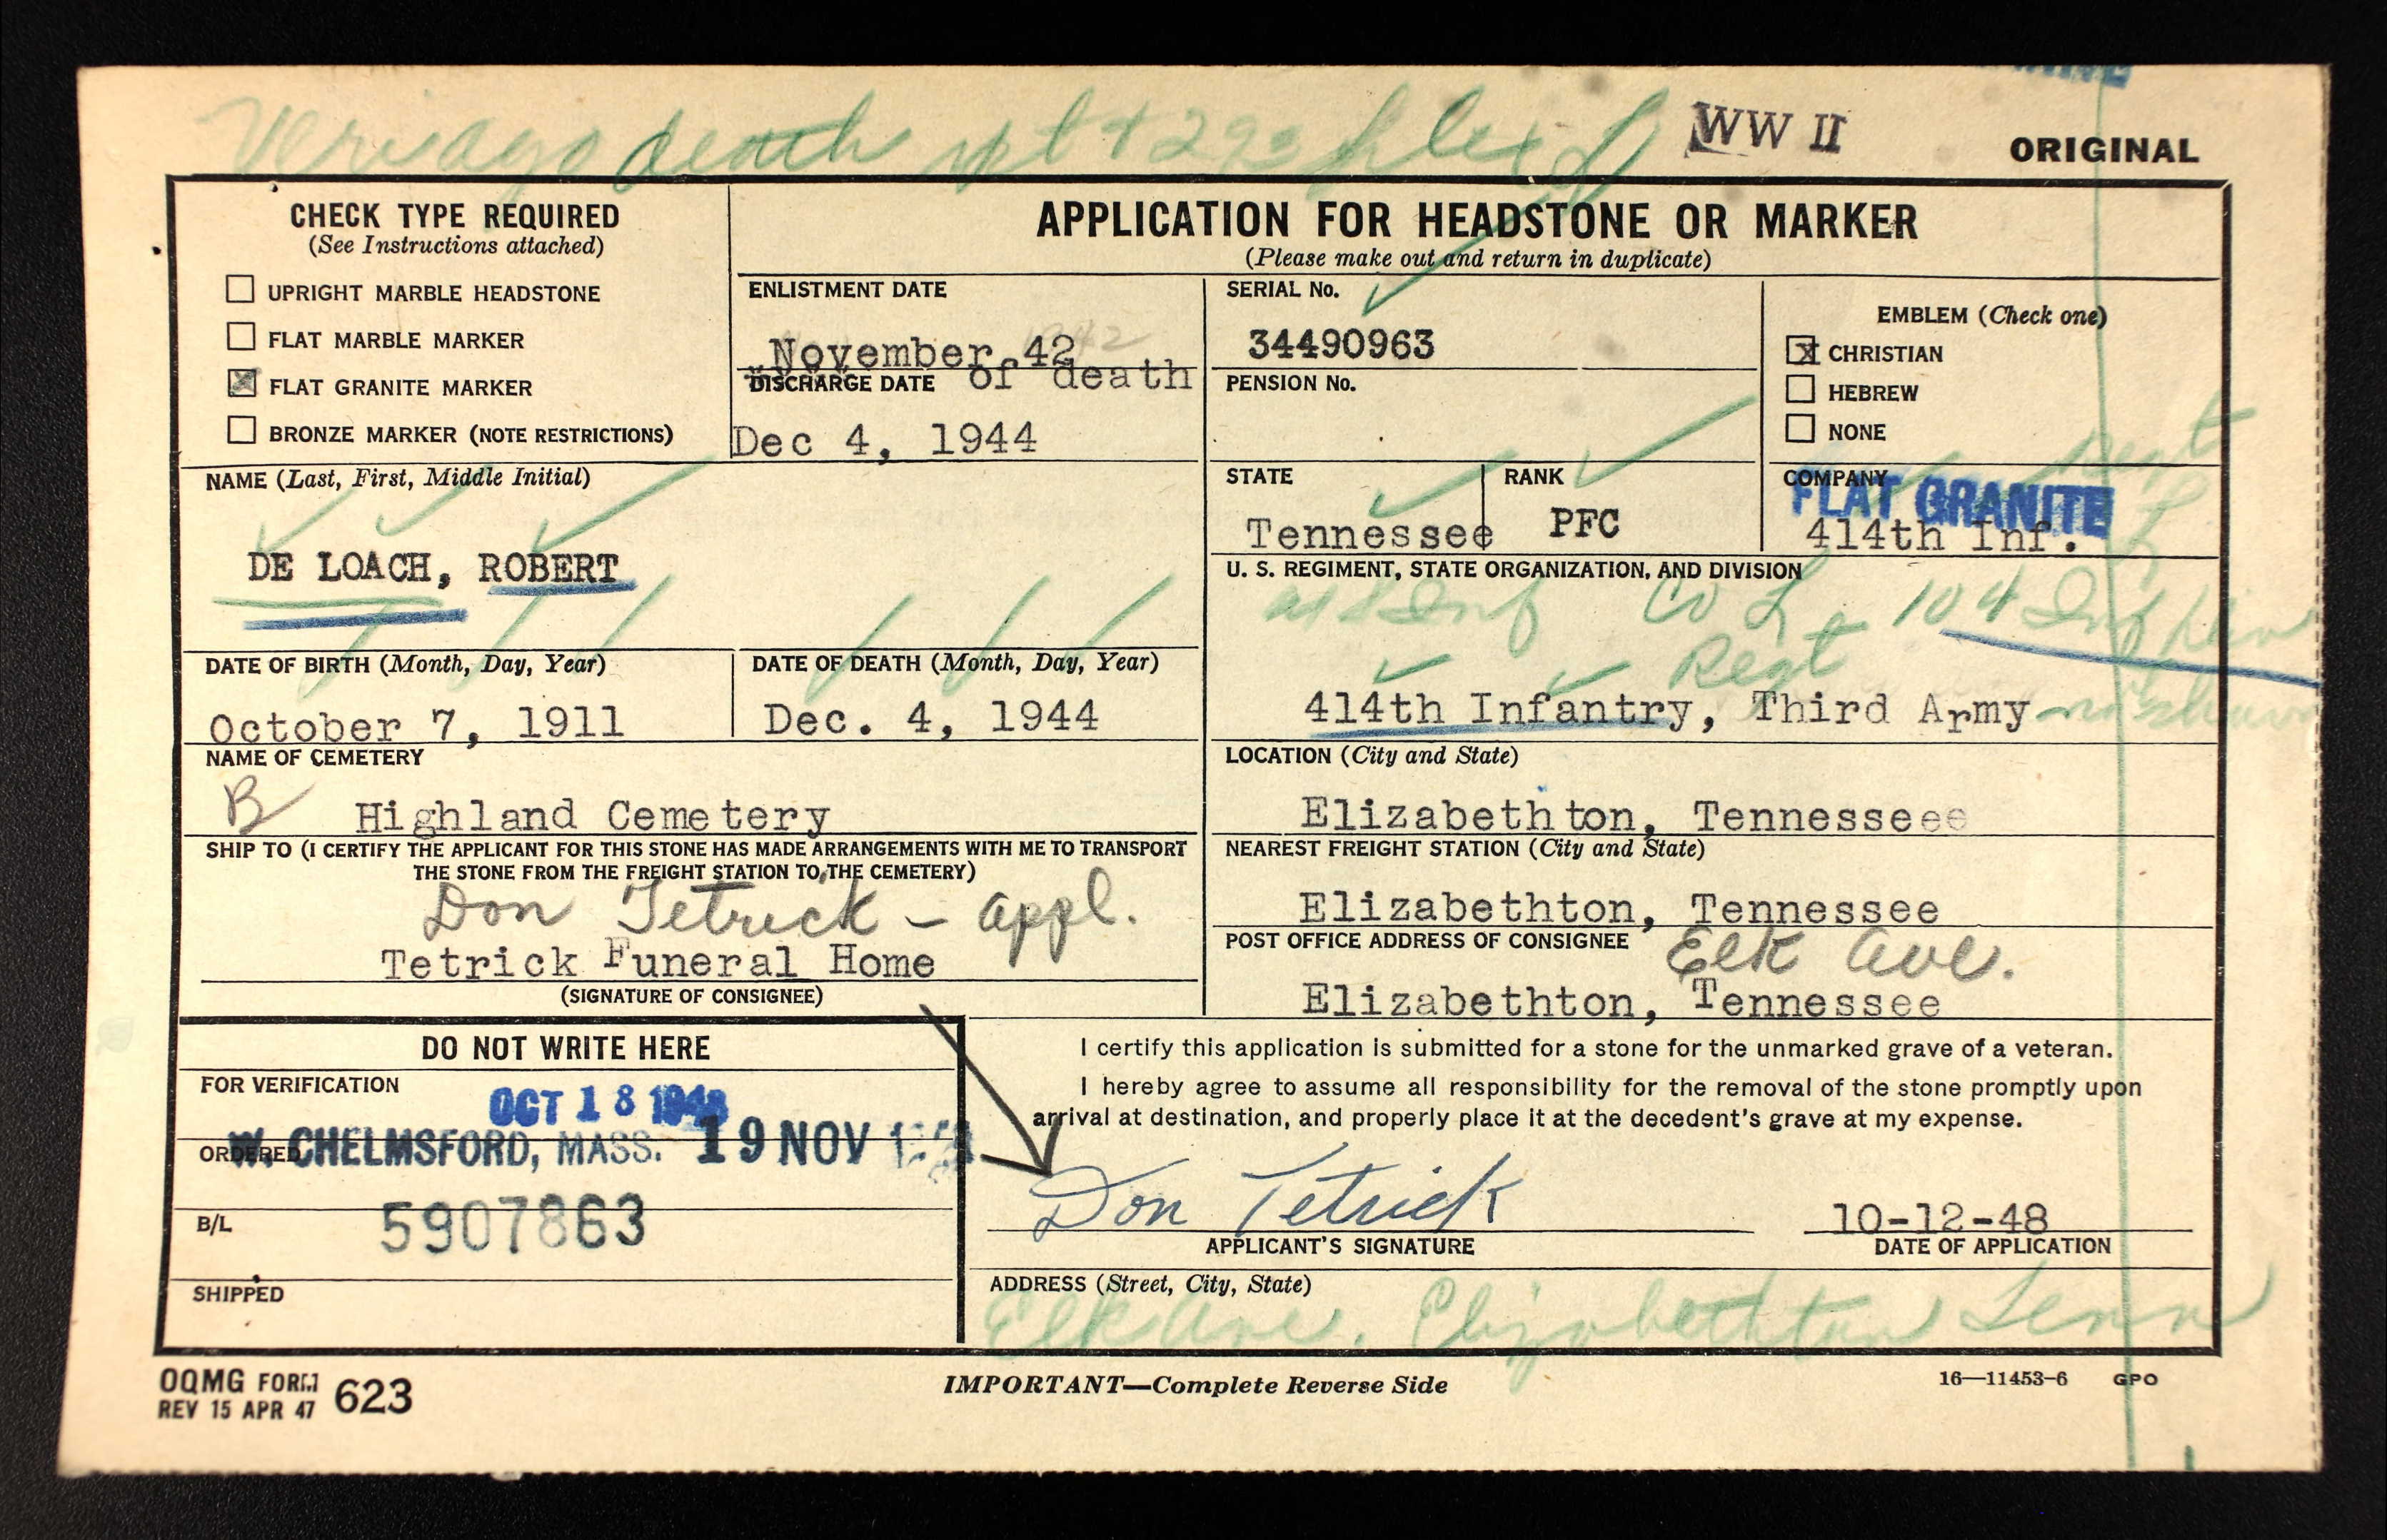 death
WW II
ORIGINAL
CHECK TYPE REQUIRED
(See Instructions attached)
UPRIGHT MARBLE HEADSTONE
FLAT MARBLE MARKER
FLAT GRANITE MARKER
BRONZE MARKER (NOTE RESTRICTIONS)
APPLICATION FOR HEADSTONE OR MARKER
(Please make out and return in duplicate)
ENLISTMENT DATE
1942
November 42
DISCHARGE DATE of death
Dec 4, 1944
SERIAL No.
34490963
PENSION No.
EMBLEM (Check one)
x CHRISTIAN
HEBREW
NONE
NAME (Last, First, Middle Initial)
DE LOACH, ROBERT
STATE
Tennessee
RANK
PFC
COMPANY
FLAT GRANITE
414th Inf.
Regt
L
U. S. REGIMENT, STATE ORGANIZATION, AND DIVISION
Inf Co L 104 Inf Div
Regt
414th Infantry, Third Army
DATE OF BIRTH (Month, Day, Year)
October 7, 1911
DATE OF DEATH (Month, Day, Year)
Dec. 4, 1944
NAME OF CEMETERY
B Highland Cemetery
LOCATION (City and State)
Elizabethton, Tennesseee
SHIP TO (I CERTIFY THE APPLICANT FOR THIS STONE HAS MADE ARRANGEMENTS WITH ME TO TRANSPORT
THE STONE FROM THE FREIGHT STATION TO THE CEMETERY)
Don Tetrick - appl.
Tetrick Funeral Home
(SIGNATURE OF CONSIGNEE)
NEAREST FREIGHT STATION (City and State)
Elizabethton, Tennessee
POST OFFICE ADDRESS OF CONSIGNEE
Elk Ave.
Elizabethton, Tennessee
DO NOT WRITE HERE
FOR VERIFICATION
OCT 18 1948
ORDERED
W. CHELMSFORD, MASS. 19 NOV
B/L
5907863
SHIPPED
I certify this application is submitted for a stone for the unmarked grave of a veteran.
I hereby agree to assume all responsibility for the removal of the stone promptly upon
arrival at destination, and properly place it at the decedent's grave at my expense.
Don Tetrick
APPLICANT'S SIGNATURE
10-12-48
DATE OF APPLICATION
ADDRESS (Street, City, State)
Elk Ave. Elizabethton Tenn
OQMG FORM 623
REV 15 APR 47
IMPORTANT—Complete Reverse Side
16—11453-6 GPO